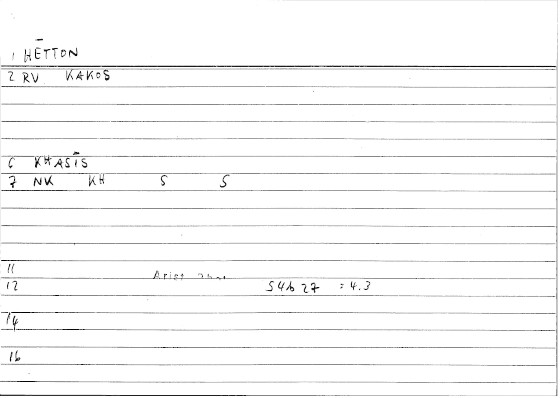 1 HĒTTON
2 RV KAKOS
6 KHASĪS
7 NK KH S S
11
Arist
12 54b 27 = 4.3
14
16